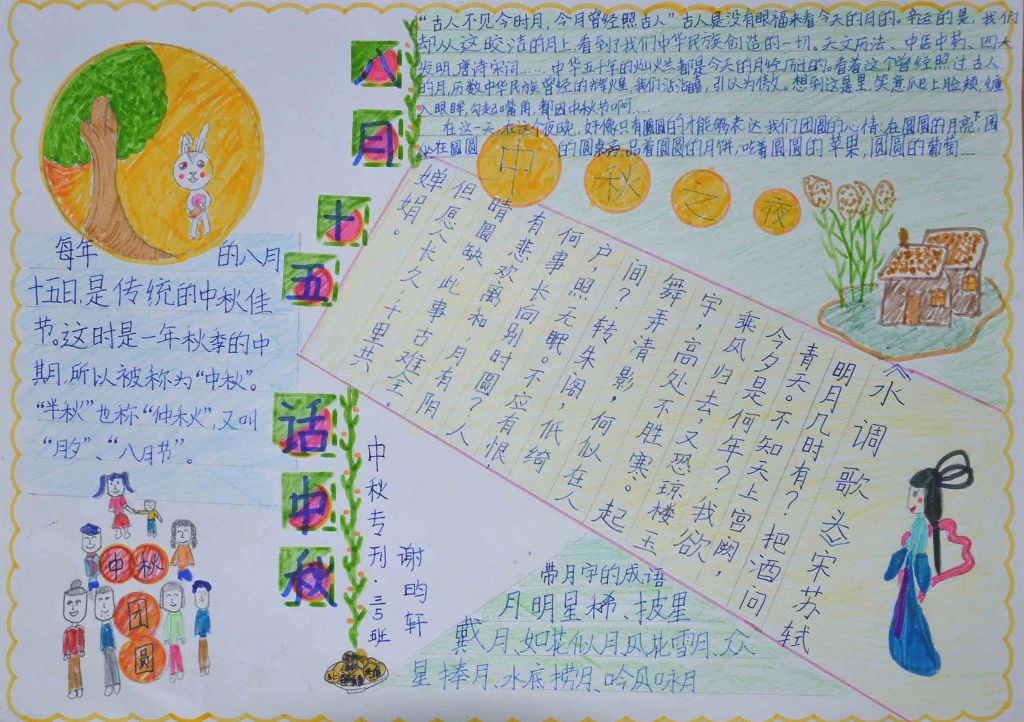 八月十五话中秋
“古人不见今时月，今月曾经照古人”古人是没有眼福来看今天的月的。幸运的是，我们
却从这皎洁的月上，看到了我们中华民族创造的一切。天文历法、中医中药、四大
发明，唐诗宋词……，中华五千年的灿烂都是今天的月经历过的。看着这个曾经照过古人
的月，历数中华民族曾经的辉煌，我们沾沾自喜，引以为傲。想到这里，笑意爬上脸颊，缠
入眼眸，勾起嘴角，都因中秋节啊……
在这一天，在这个夜晚，好像只有圆圆的才能够表达我们团圆的心情：在圆圆的月亮下，围
坐在圆圆的圆桌旁，品着圆圆的月饼，吃着圆圆的苹果，圆圆的葡萄……
中秋之夜
每年的八月
十五日，是传统的中秋佳
节。这时是一年秋季的中
期，所以被称为“中秋”。
“半秋”也称“仲秋”，又叫
“月夕”、“八月节”。
《水调歌头》宋苏轼
明月几时有？把酒问
青天。不知天上宫阙，
今夕是何年？我欲
乘风归去，又恐琼楼玉
宇，高处不胜寒。起
舞弄清影，何似在人
间？转朱阁，低绮
户，照无眠。不应有恨，
何事长向别时圆？人
有悲欢离和，月有阴
晴圆缺，此事古难全。
但愿人长久，千里共
婵娟。
中秋专刊·三5班
谢昀轩
中秋
团
圆
带月字的成语
月明星稀、披星
戴月、如花似月、风花雪月、众
星捧月、水底捞月、吟风咏月